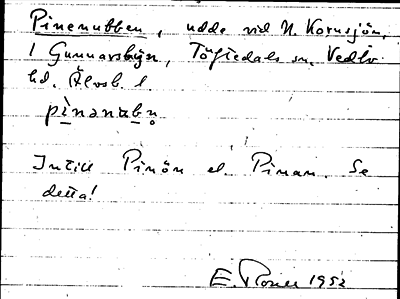 Pinenubben, udde vid N. Kornsjön,
1 Gunnarsbyn, Töftedals sn, Vedbo
hd. Älvsb. l.
pìnanabn̥
Intill Pinön el. Pinan. Se
detta!
E. 1952